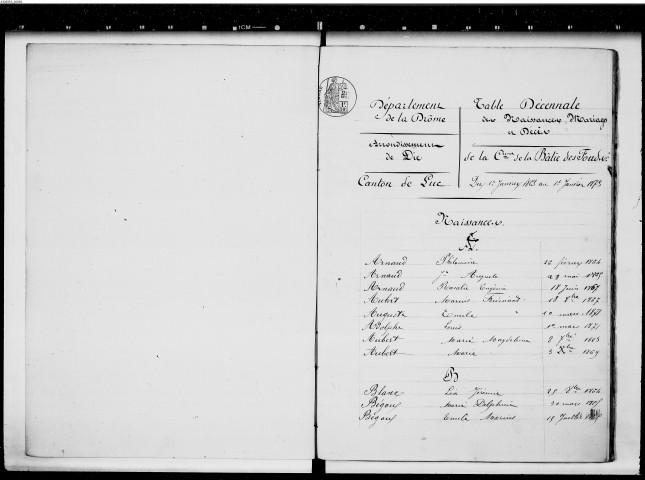 Département
de la Drôme
Arrondissement
de Die
Canton de Luc
Table Décennale
des Naissances, Mariages
et Décès
de la Cne de la Bâtie des Fonds
Du 1er Janvier 1863 au 1er Janvier 1873
Naissances.
A.
Arnaud Philomène février
Arnaud Auguste mai
Arnaud Rosalie Eugénie 18 Juin 1867
Aubert Marius Fernand 18 8bre 1867
Auguste Emile 10 mars 1871
Adolphe Louis 1er mars 1871
Aubert Marie Magdeleine 8 1863
Aubert Marie 3 Xbre 1869
B
Blanc 25 8bre
Bégou Marie Delphine 20 mars
Bégou Emile Marius 19 Juillet